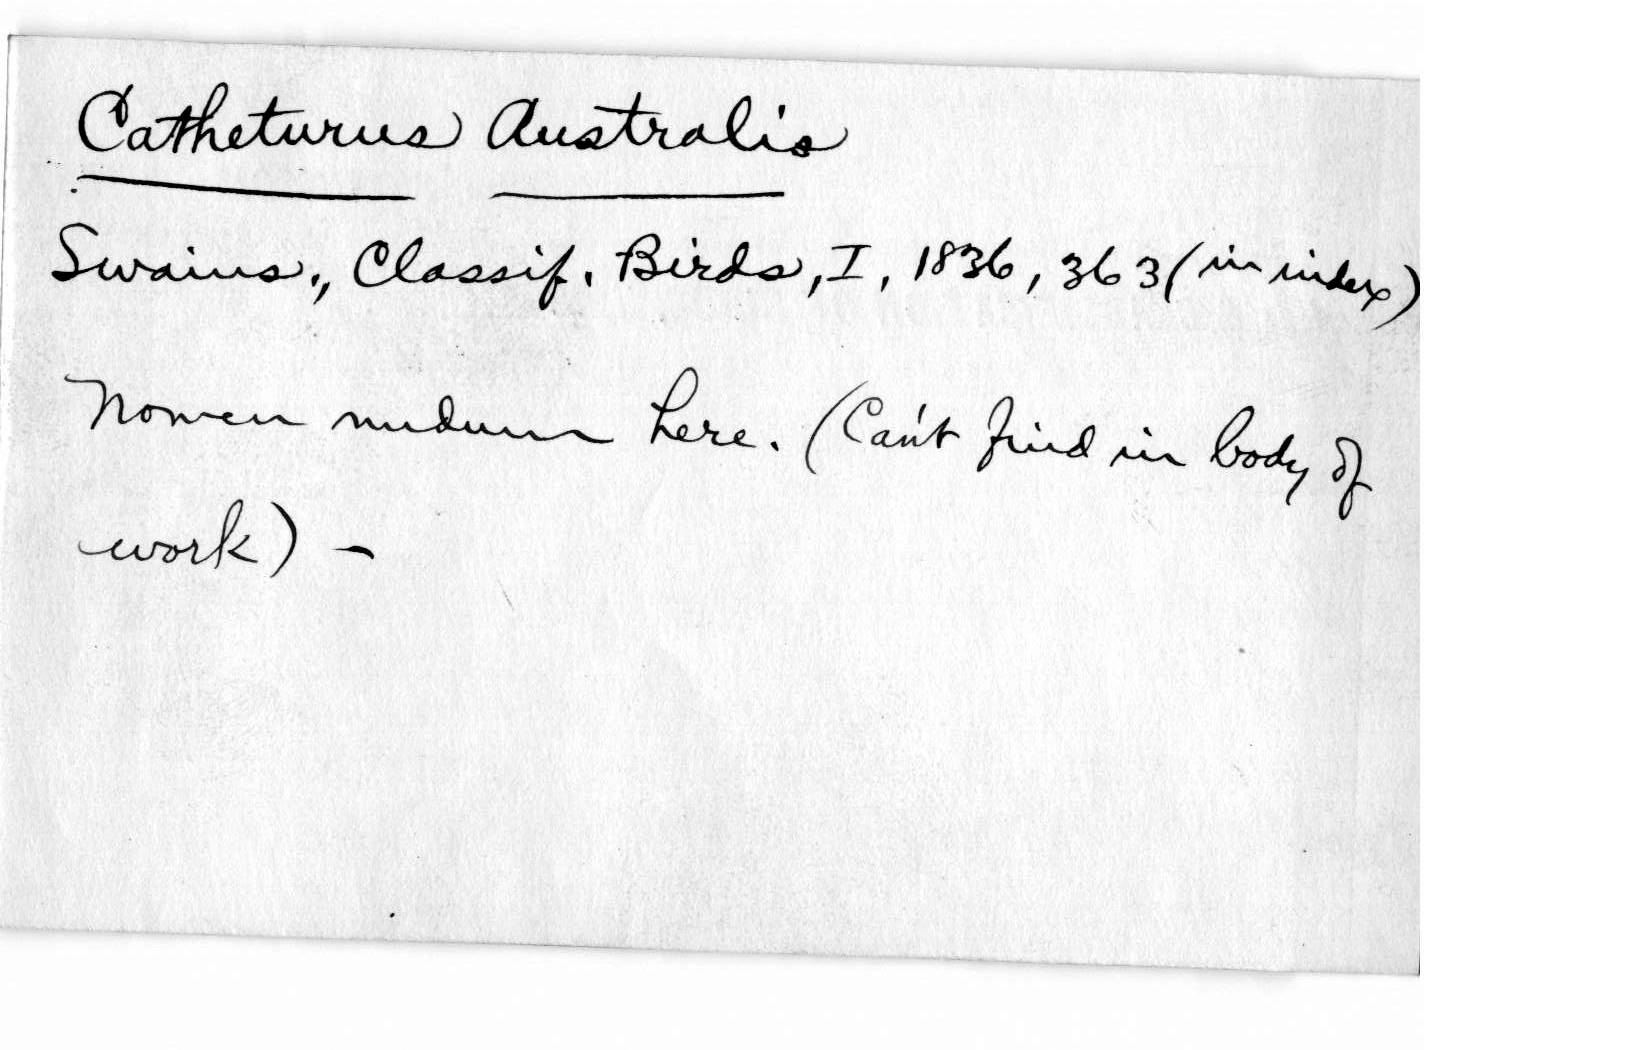 Catheturus Australis
Swains., Classif. Birds, I, 1836, 363 (in index)
Nomen nudum here. (Can't find in body of
work) -